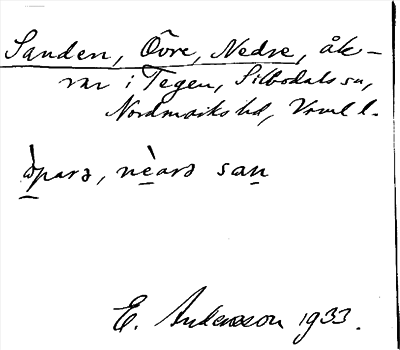 Sanden, Övre, Nedre, åk-
rar i Tegen, Silbodals sn,
Nordmarks hd, Vrml l.
ə̀parə, nèarə san
E. Andersson 1933.